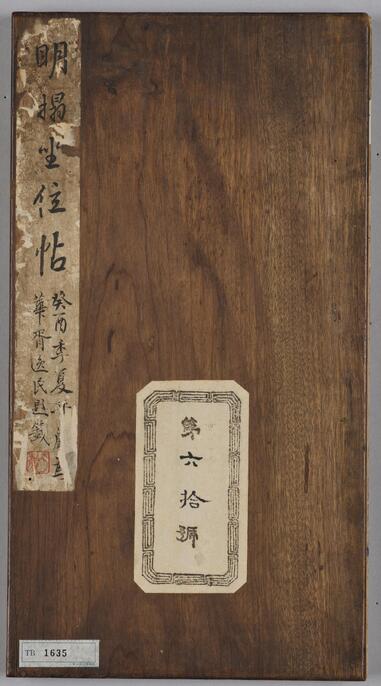 明搨坐位帖
癸酉季夏
華胥逸民題籤
第六拾號
TB 1635